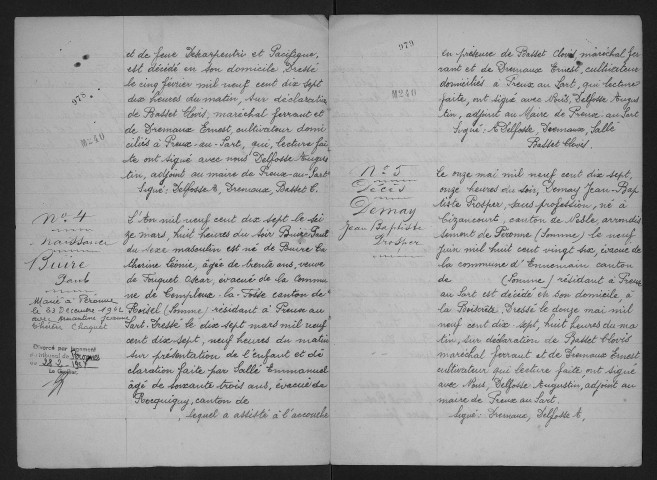 et de feue Decarpentri et Pacifique,
est décédé en son domicile Dressé
le cinq février mil neuf cent dix sept
dix heures du matin, sur déclaration
de Basset Clovis, maréchal ferrant et
de Dremaux Ernest, cultivateur domi
ciliés à Preux-au-Sart, qui, lecture fai
te ont signé avec nous Delfosse Augus
tin, adjoint au maire de Preux-au-Sart
Signé: Delfosse A, Dremaux, Basset C.
978
M240
No 4
naissance
Buire
Paul
Marié à Péronne
le 23 Décembre 1942
avec
Divorcé par jugement
du tribunal de Péronne
du 22
Le Greffier,
L'An mil neuf cent dix sept le sei
ze mars, huit heures du soir Buire Paul
du sexe masculin est né de Buire Ca
therine Léonie, âgée de trente ans, veuve
de Fouquet Oscar, évacué de la commu
ne de Templeux-la-Fosse canton de
Roisel (Somme) résidant à Preux au
Sart. Dressé le dix sept mars mil neuf
cent dix sept, neuf heures du matin
sur présentation de l'enfant et dé
claration faite par Sallé Emmanuel
âgé de soixante trois ans, évacué de
Rocquigny, canton de
, lequel a assisté à l'accouche
979
M240
en présence de Basset Clovis, maréchal fer
rant et de Dremaux Ernest, cultivateur
domiciliés à Preux au Sart, qui, lecture
faite, ont signé avec Nous, Delfosse Augus
tin, adjoint au Maire de Preux-au-Sart
Signé: A Delfosse, Dremaux, Sallé
Basset Clovis.
No 5
Décès
Demay
Jean Baptiste
Prosper
Le onze mai mil neuf cent dix sept,
onze heures du soir, Demay Jean-Bap
tiste Prosper, sans profession, né à
Cizancourt, canton de Nesle, arrondis
sement de Péronne (Somme) le neuf
juin mil huit cent vingt six, évacué de
la commune d'Ennemain canton
de (Somme) résidant à Preux
au Sart est décédé en son domicile, à
la Boiscrête. Dressé le douze mai mil
neuf cent dix-sept, huit heures du ma
tin, sur déclaration de Basset Clovis
maréchal ferrant et de Dremaux Ernest
cultivateur qui lecture faite, ont signé
avec Nous, Delfosse Augustin, adjoint au
maire de Preux au Sart.
Signé: Dremaux, Delfosse A.